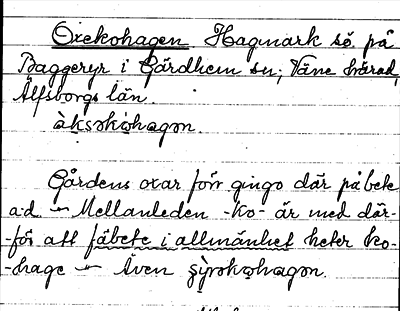 Oxekohagen Hagmark sö. på
Baggeryr i Gärdhem sn, Väne härad,
Älfsborgs län.
àksəkωhagən.
Gårdens oxar förr gingo där på bete
a.d. — Mellanleden -ko- är med där-
-för att fäbete i allmänhet heter ko-
-hage — Även